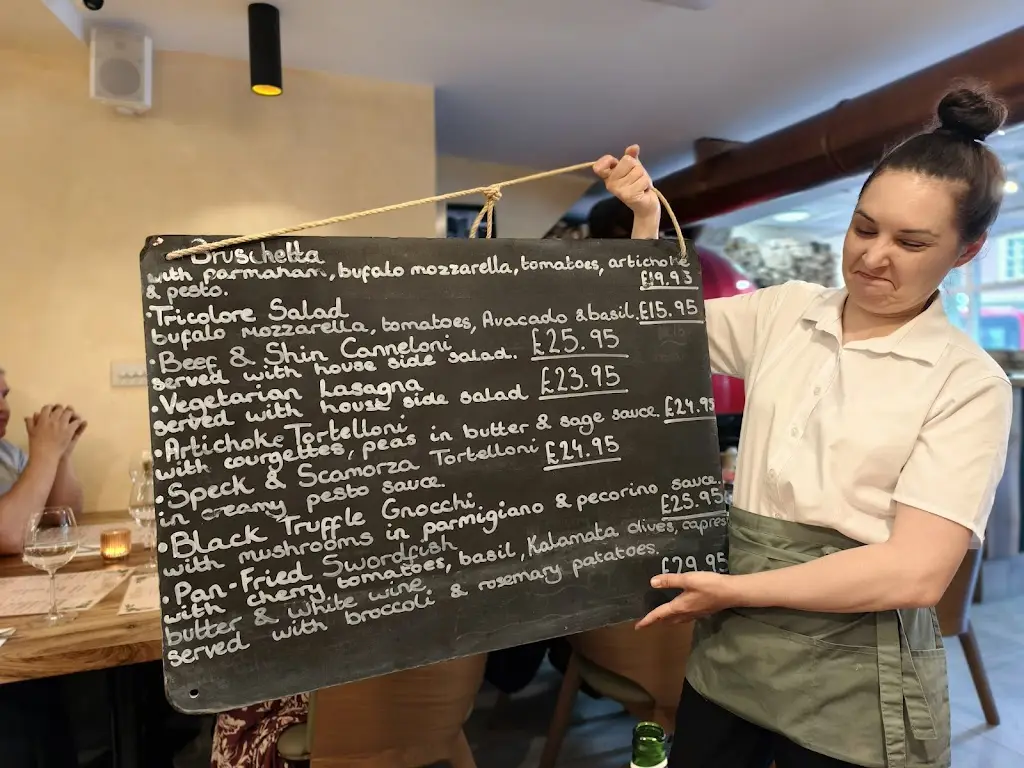 Bruschetta
with parmaham, bufalo mozzarella, tomatoes, artichoke
& pesto. £19.95
·Tricolore Salad
bufalo mozzarella, tomatoes, Avacado & basil. £15.95
·Beef & Shin Canneloni
served with house side salad. £25.95
·Vegetarian Lasagna
served with house side salad £23.95
·Artichoke Tortelloni
with courgettes, peas in butter & sage sauce. £24.95
·Speck & Scamorza Tortelloni
in creamy pesto sauce. £24.95
·Black Truffle Gnocchi
with mushrooms in parmigiano & pecorino sauce.
£25.95
·Pan-Fried Swordfish
with cherry tomatoes, basil, Kalamata olives, capres
butter & white wine
served with broccoli & rosemary patatoes. £29.95